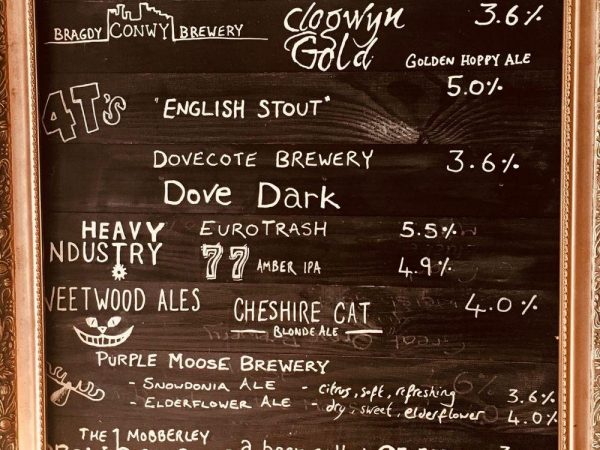 BRAGDY CONWY BREWERY clogwyn Gold 3.6%
GOLDEN HOPPY ALE
4T's "ENGLISH STOUT" 5.0%
DOVECOTE BREWERY 3.6%
Dove Dark
HEAVY NDUSTRY EUROTRASH 5.5%
77 AMBER IPA 4.9%
WEETWOOD ALES CHESHIRE CAT 4.0%
BLONDE ALE
PURPLE MOOSE BREWERY
- SNOWDONIA ALE - citrus, soft, refreshing 3.6%
- ELDERFLOWER ALE - dry, sweet, elderflower 4.0%
THE 1 MOBBERLEY